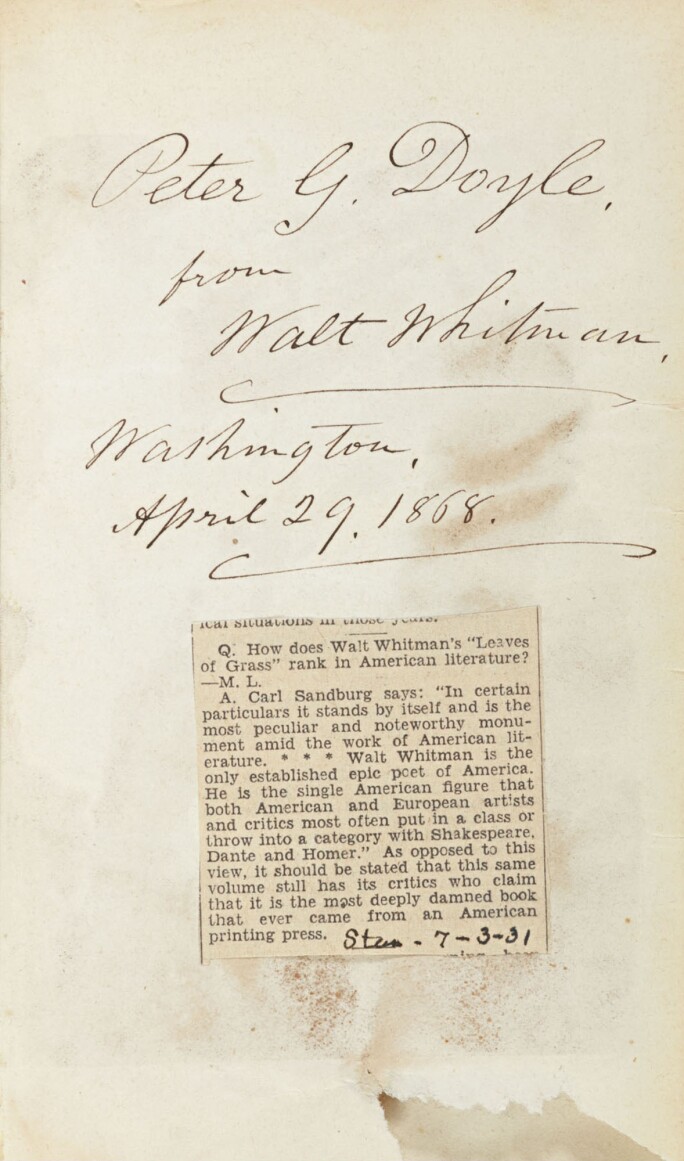 Peter G. Doyle,
from
Walt Whitman,
Washington,
April 29, 1868.
ical situations in those years.
Q. How does Walt Whitman's "Leaves
of Grass" rank in American literature?
—M. L.
A. Carl Sandburg says: "In certain
particulars it stands by itself and is the
most peculiar and noteworthy monu-
ment amid the work of American lit-
erature. * * * Walt Whitman is the
only established epic poet of America.
He is the single American figure that
both American and European artists
and critics most often put in a class or
throw into a category with Shakespeare,
Dante and Homer." As opposed to this
view, it should be stated that this same
volume still has its critics who claim
that it is the most deeply damned book
that ever came from an American
printing press. Star - 7-3-31